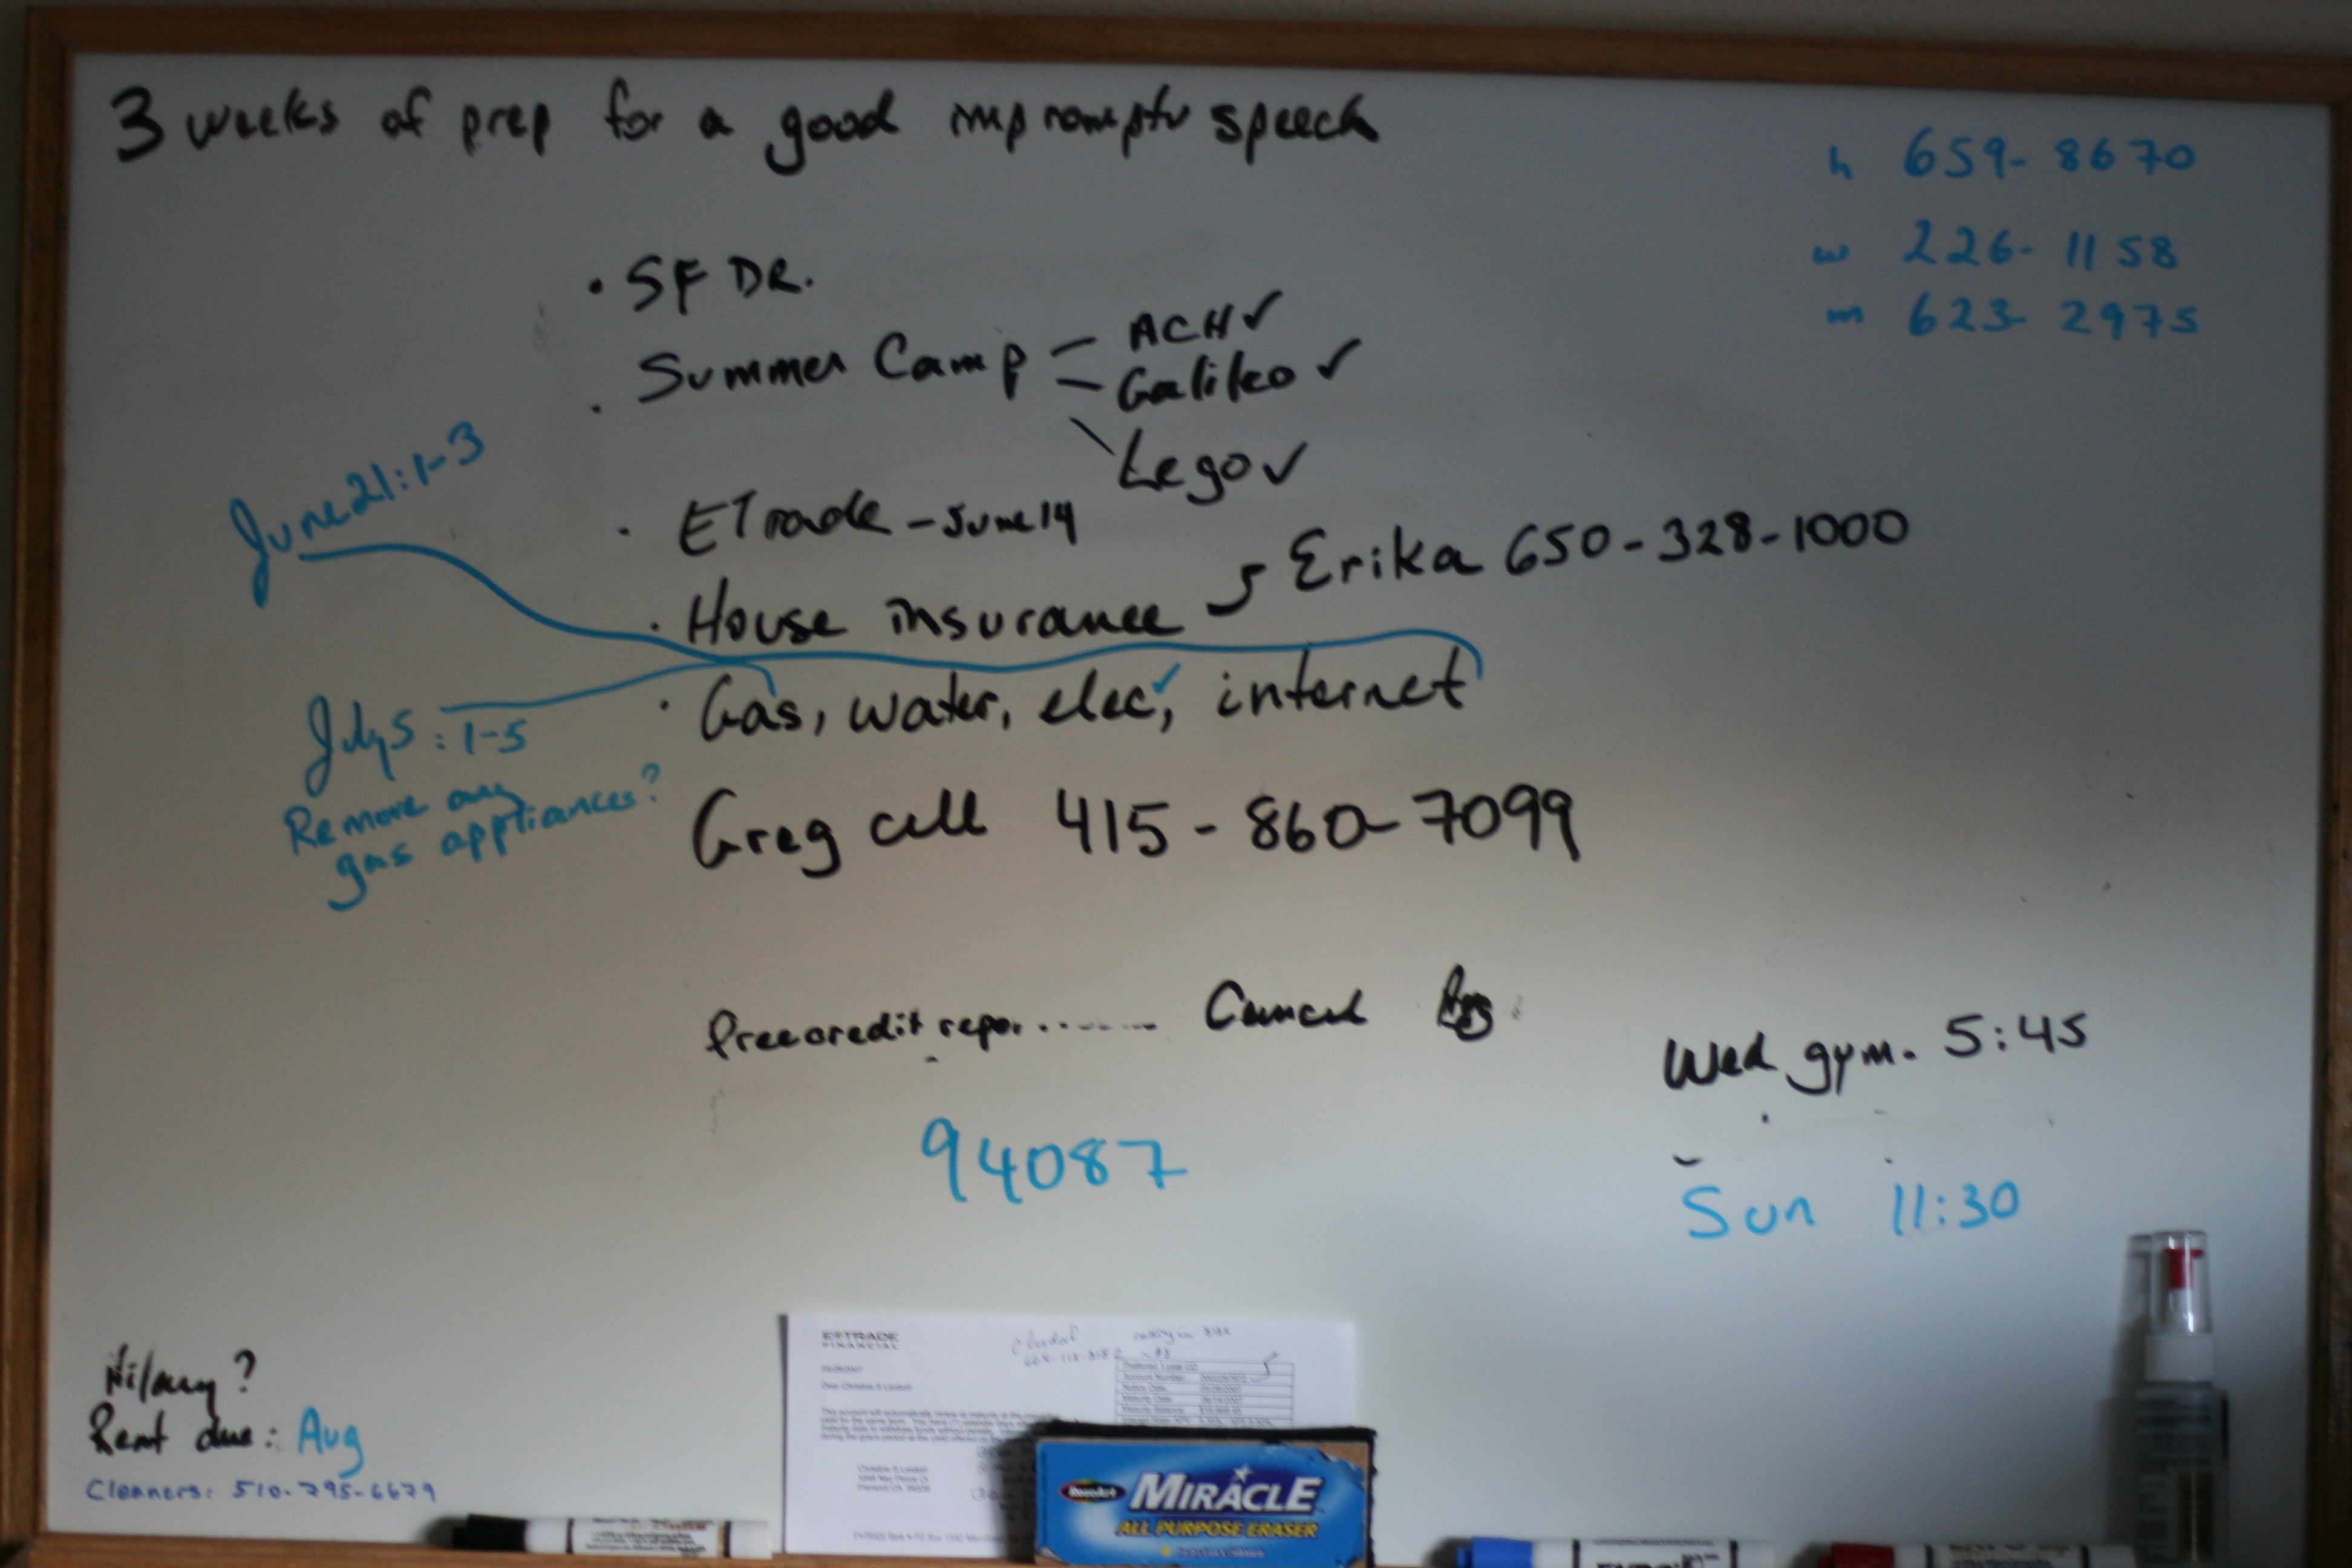 3 weeks of prep for a good impromptu speech
h 659-8670
w 226-1158
m 623-2975
• SF DR.
• Summer Camp - ACH ✓
- Galileo ✓
\ Lego ✓
June 21: 1-3
• ETrade - June 14
• House insurance } Erika 650-328-1000
• Gas, water, elec ✓, internet
July 5: 1-5
Remove any
gas appliances?
Greg cell 415-860-7099
freecredit repo. ....... Cancel
Wed gym. 5:45
94087
Sun 11:30
Hilary?
Rent due: Aug
Cleaners: 510-795-6679
E*TRADE
FINANCIAL
Dear Christine S Landolt
Account Number:
Notice Date:
Maturity Date:
Maturity Balance:
RoseArt
MIRACLE
ALL PURPOSE ERASER
EXPO